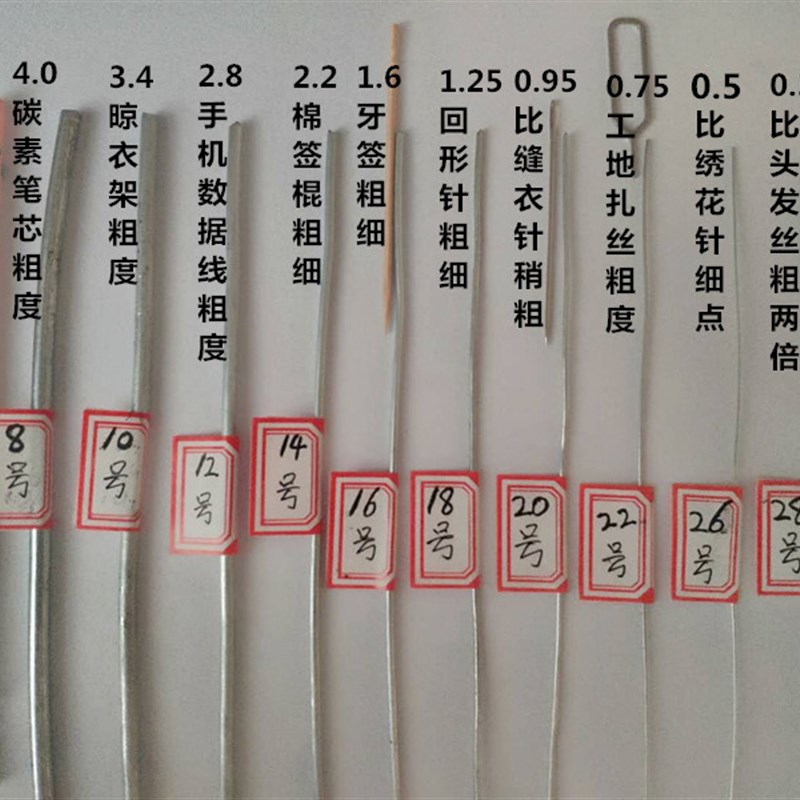 4.0
碳素笔芯粗度
3.4
晾衣架粗度
2.8
手机数据线粗度
2.2
棉签棍粗细
1.6
牙签粗细
1.25
回形针粗细
0.95
比缝衣针稍粗
0.75
工地扎丝粗度
0.5
比绣花针细点
0.
比头发丝粗两倍
8号
10号
12号
14号
16号
18号
20号
22号
26号
28号